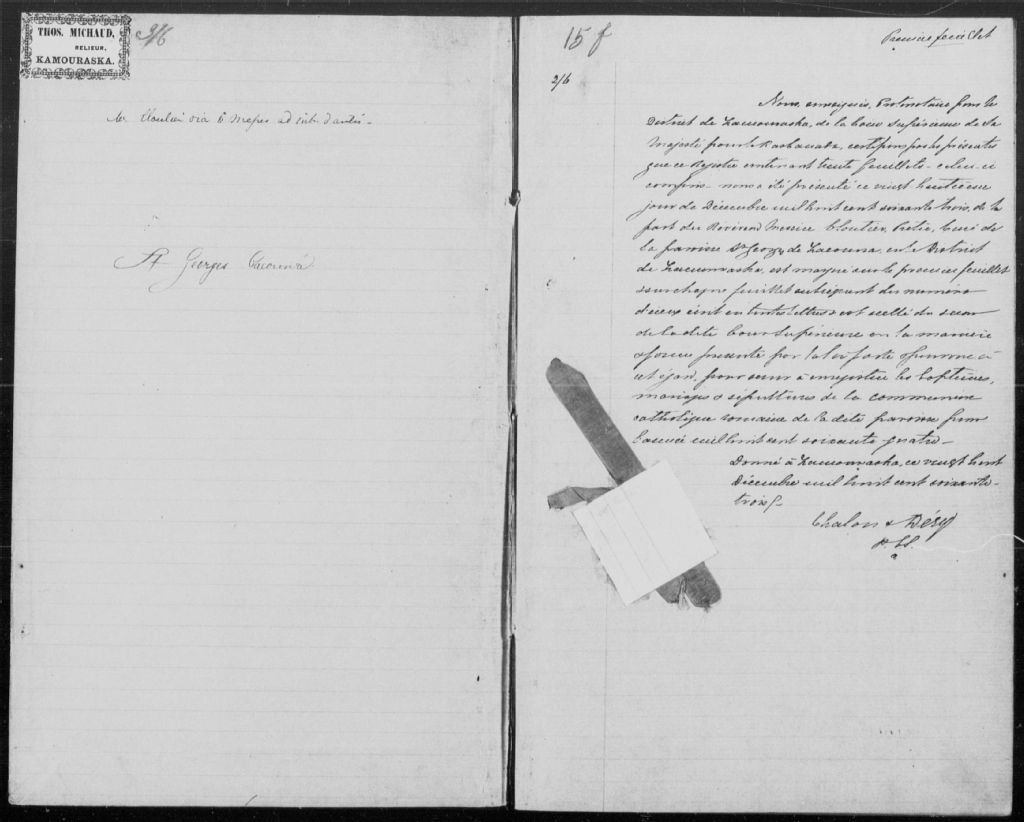 THOS. MICHAUD,
RELIEUR,
KAMOURASKA.
2/6
St Georges Cacouna
15 f
Premier feuillet
2/6
Nous, soussignés, Protonotaire pour le
District de Kamouraska, de la Cour Supérieure de Sa
Majesté pour le Bas Canada, certifions par les présentes
que ce Registre contenant trente feuillets celui-ci
compris nous a été présenté ce vingt huitième
jour de Décembre mil huit cent soixante trois, de la
part du Révérend Messire Cloutier, Prêtre, Curé de
la paroisse St George de Kacouna, en le District
de Kamouraska, est marqué sur le premier feuillet
& sur chaque feuillet subséquent du numéro
deux cent en toutes lettres & est scellé du sceau
de la dite Cour Supérieure en la manière
& forme prescrite par la loi faite & pourvue à
cet égard, pour servir à enregistrer les baptêmes,
mariages & sépultures de la communion
catholique romaine de la dite paroisse pour
l'année mil huit cent soixante quatre
Donné à Kamouraska, ce vingt huit
Décembre mil huit cent soixante
trois/-
Chalou & Déry
P. C. S.